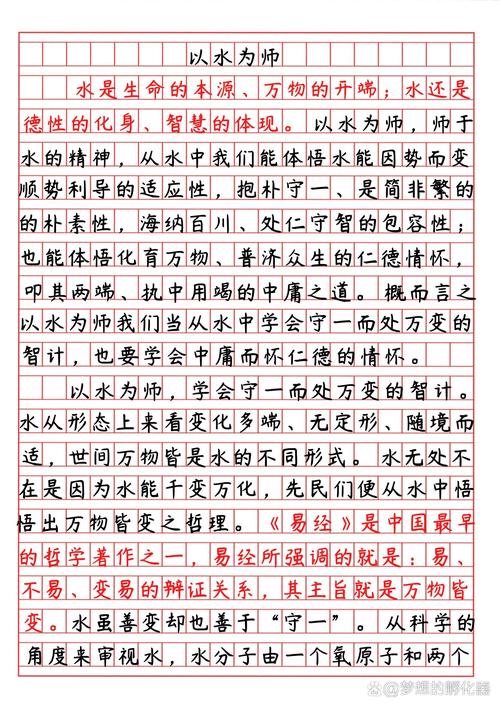 以水为师
水是生命的本源、万物的开端；水还是
德性的化身、智慧的体现。以水为师，师于
水的精神，从水中我们能体悟水能因势而变
顺势利导的适应性，抱朴守一、是简非繁的
的朴素性，海纳百川、处仁守智的包容性；
也能体悟化育万物、普济众生的仁德情怀，
叩其两端、执中用竭的中庸之道。概而言之
以水为师我们当从水中学会守一而处万变的
智计，也要学会中庸而怀仁德的情怀。
以水为师，学会守一而处万变的智计。
水从形态上来看变化多端、无定形、随境而
适，世间万物皆是水的不同形式。水无处不
在是因为水能千变万化，先民们便从水中悟
悟出万物皆变之哲理。《易经》是中国最早
的哲学著作之一，易经所强调的就是：易、
不易、变易的辩证关系，其主旨就是万物皆
变。水虽善变却也善于“守一”。从科学的
角度来审视水，水分子由一个氧原子和两个
@梦想的孵化器